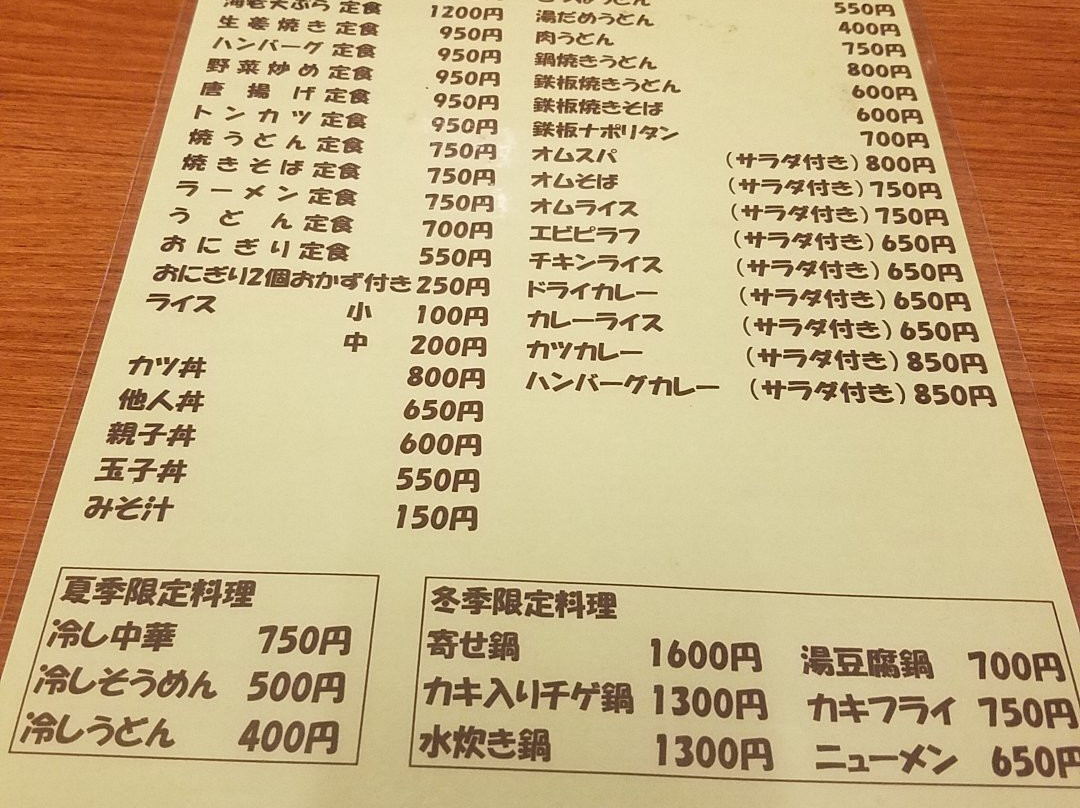 海老天ぷら定食 1200円
生姜焼き定食 950円
ハンバーグ定食 950円
野菜炒め定食 950円
唐揚げ定食 950円
トンカツ定食 950円
焼うどん定食 750円
焼きそば定食 750円
ラーメン定食 750円
うどん定食 700円
おにぎり定食 550円
おにぎり2個おかず付き 250円
ライス 小 100円
中 200円
カツ丼 800円
他人丼 650円
親子丼 600円
玉子丼 550円
みそ汁 150円
うどん 550円
湯だめうどん 400円
肉うどん 750円
鍋焼きうどん 800円
鉄板焼きうどん 600円
鉄板焼きそば 600円
鉄板ナポリタン 700円
オムスパ (サラダ付き) 800円
オムそば (サラダ付き) 750円
オムライス (サラダ付き) 750円
エビピラフ (サラダ付き) 650円
チキンライス (サラダ付き) 650円
ドライカレー (サラダ付き) 650円
カレーライス (サラダ付き) 650円
カツカレー (サラダ付き) 850円
ハンバーグカレー (サラダ付き) 850円
夏季限定料理
冷し中華 750円
冷しそうめん 500円
冷しうどん 400円
冬季限定料理
寄せ鍋 1600円 湯豆腐鍋 700円
カキ入りチゲ鍋 1300円 カキフライ 750円
水炊き鍋 1300円 ニューメン 650円